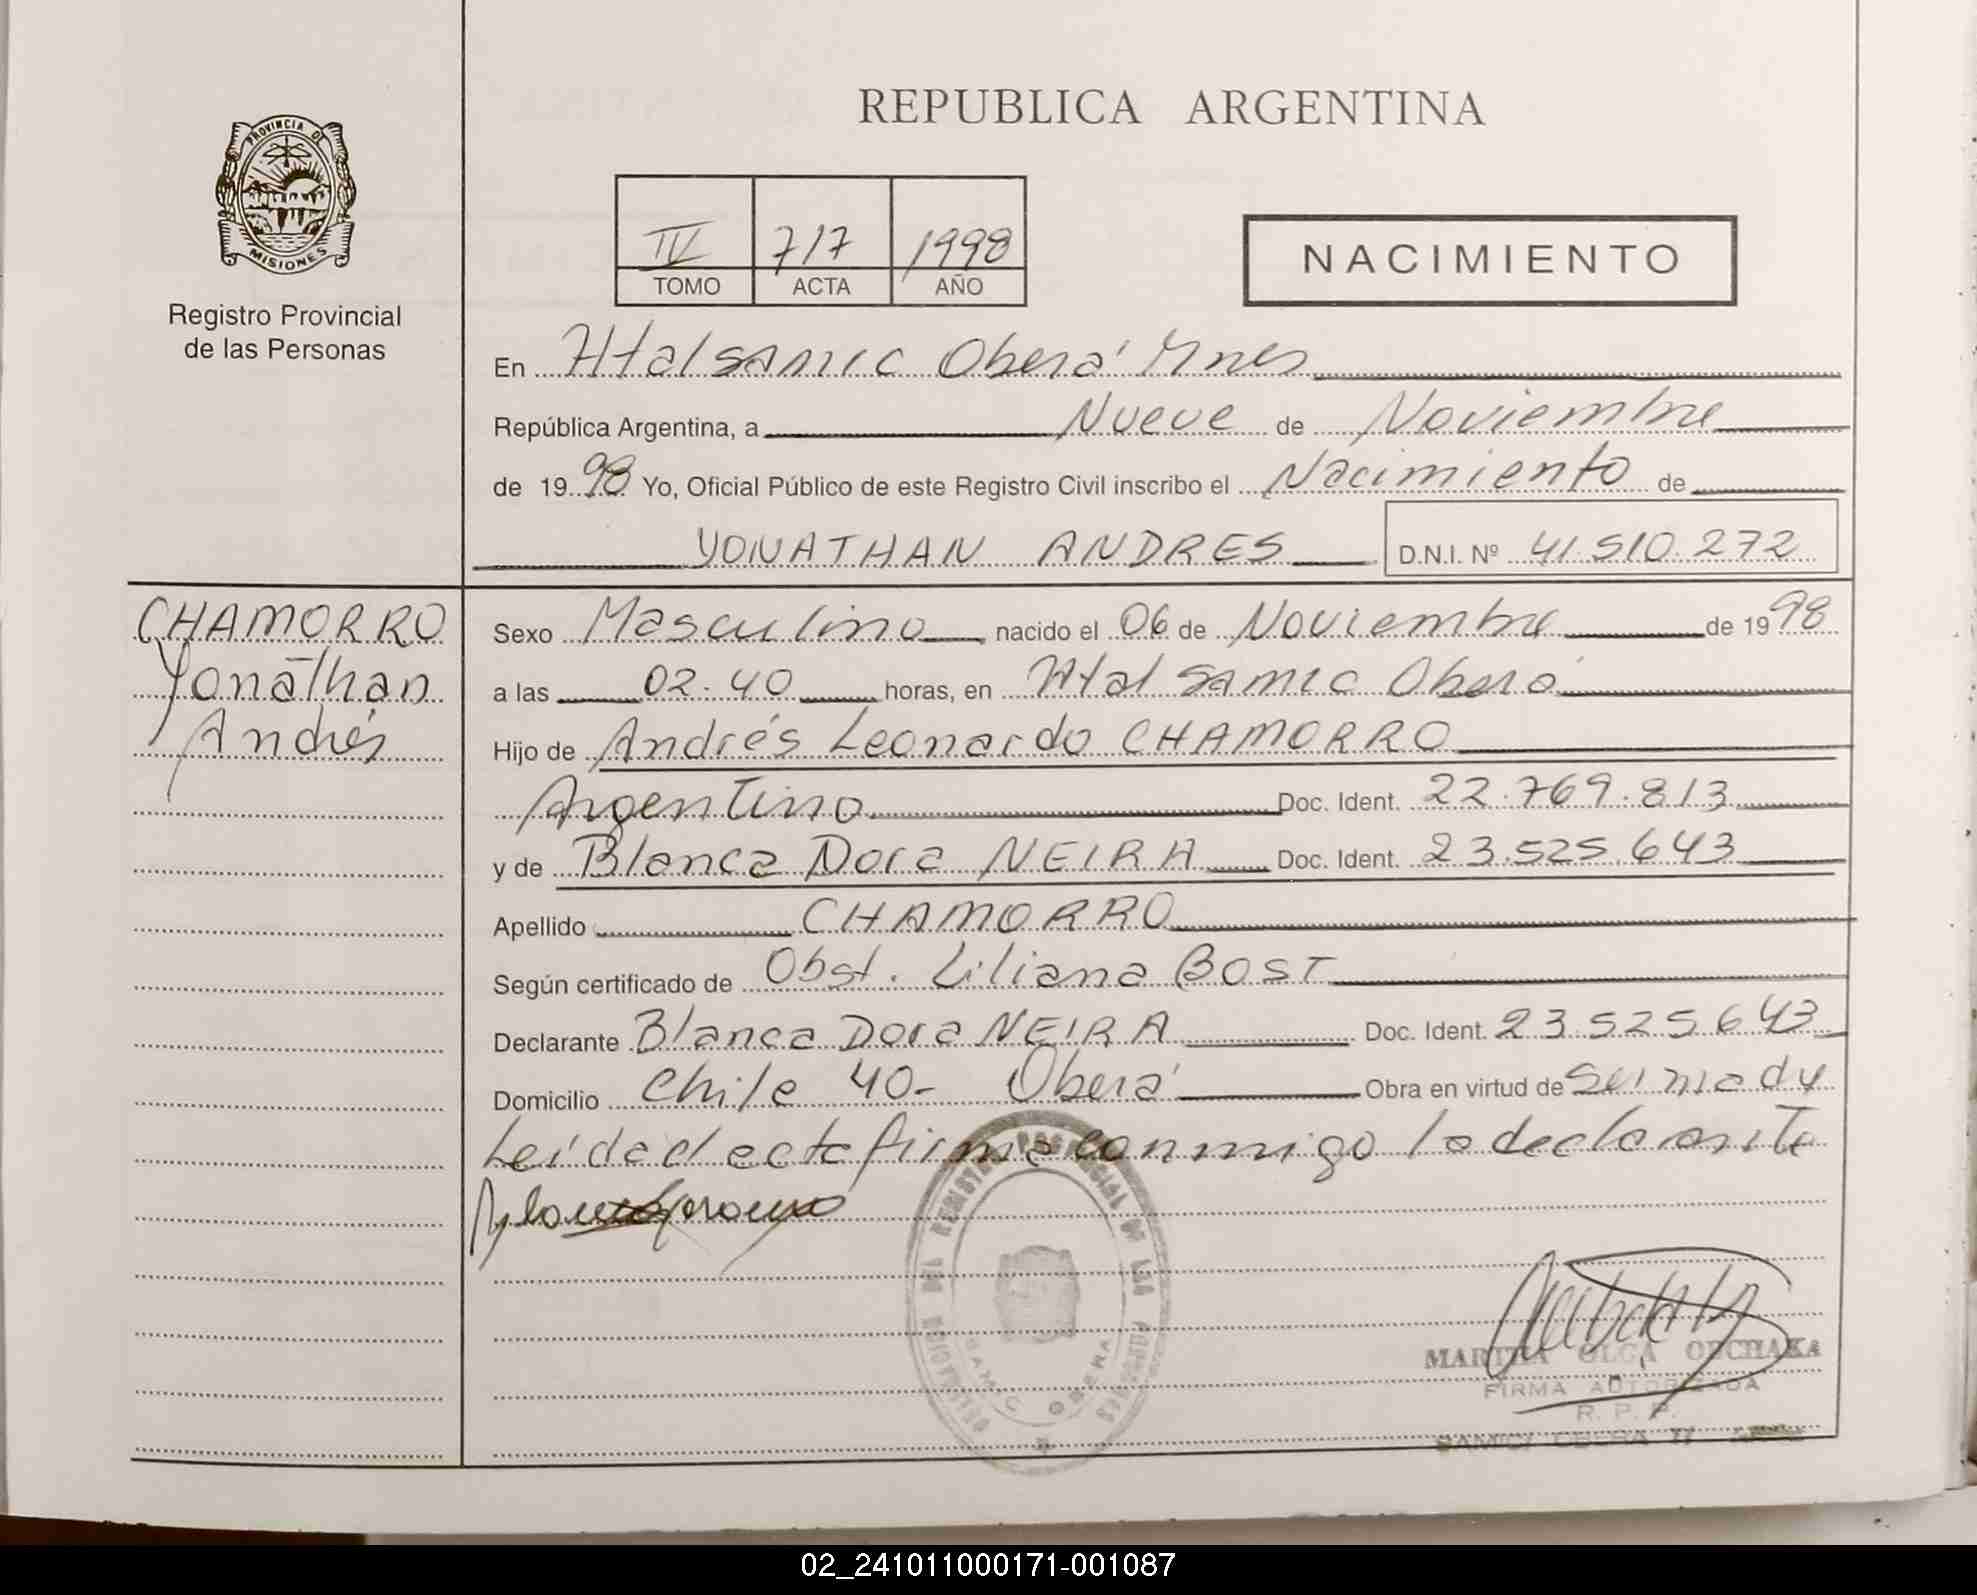 REPUBLICA ARGENTINA
PROVINCIA DE
MISIONES
Registro Provincial
de las Personas
IV 717 1998
TOMO ACTA AÑO
NACIMIENTO
En Htal SAMIC Oberá Mnes
República Argentina, a Nueve de Noviembre
de 1998 Yo, Oficial Público de este Registro Civil inscribo el Nacimiento de
YONATHAN ANDRES D.N.I. Nº 41.510.272
CHAMORRO
Yonathan
Andrés
Sexo Masculino nacido el 06 de Noviembre de 1998
a las 02.40 horas, en Htal SAMIC Oberá
Hijo de Andrés Leonardo CHAMORRO
Argentino Doc. Ident. 22.769.813
y de Blanca Dora NEIRA Doc. Ident. 23.525.643
Apellido CHAMORRO
Según certificado de Obst. Liliana BOST
Declarante Blanca Dora NEIRA Doc. Ident. 23525643
Domicilio Chile 40- Oberá Obra en virtud de ser madre
Leída el acta firma conmigo la declarante
DEL REGISTRO PROVINCIAL DE LAS PERSONAS
SAMIC OBERA
MARTHA OLGA
FIRMA AUTORIZADA
R. P. P.
02_241011000171-001087